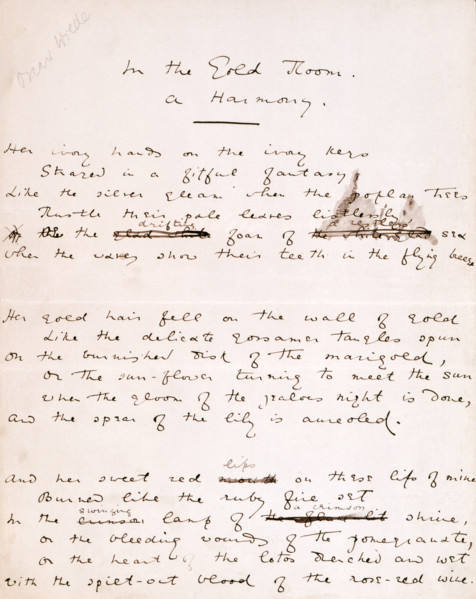 Oscar Wilde
In the Gold Room.
A Harmony.
Her ivory hands on the ivory keys
Strayed in a fitful fantasy
Like the silver gleam when the poplar trees
Rustle their pale leaves listlessly
drifting a restless
Or the foam of sea
When the waves show their teeth in the flying breeze
Her gold hair fell on the wall of gold
Like the delicate gossamer tangles spun
On the burnished disk of the marigold,
Or the sun-flower turning to meet the sun
When the gloom of the jealous night is done,
And the spear of the lily is aureoled.
lips
And her sweet red mouth on these lips of mine
Burned like the ruby fire set
swinging a crimson
In the crimson lamp of shrine,
Or the bleeding wounds of the pomegranate,
Or the heart of the lotos drenched and wet
With the spilt-out blood of the rose-red wine.